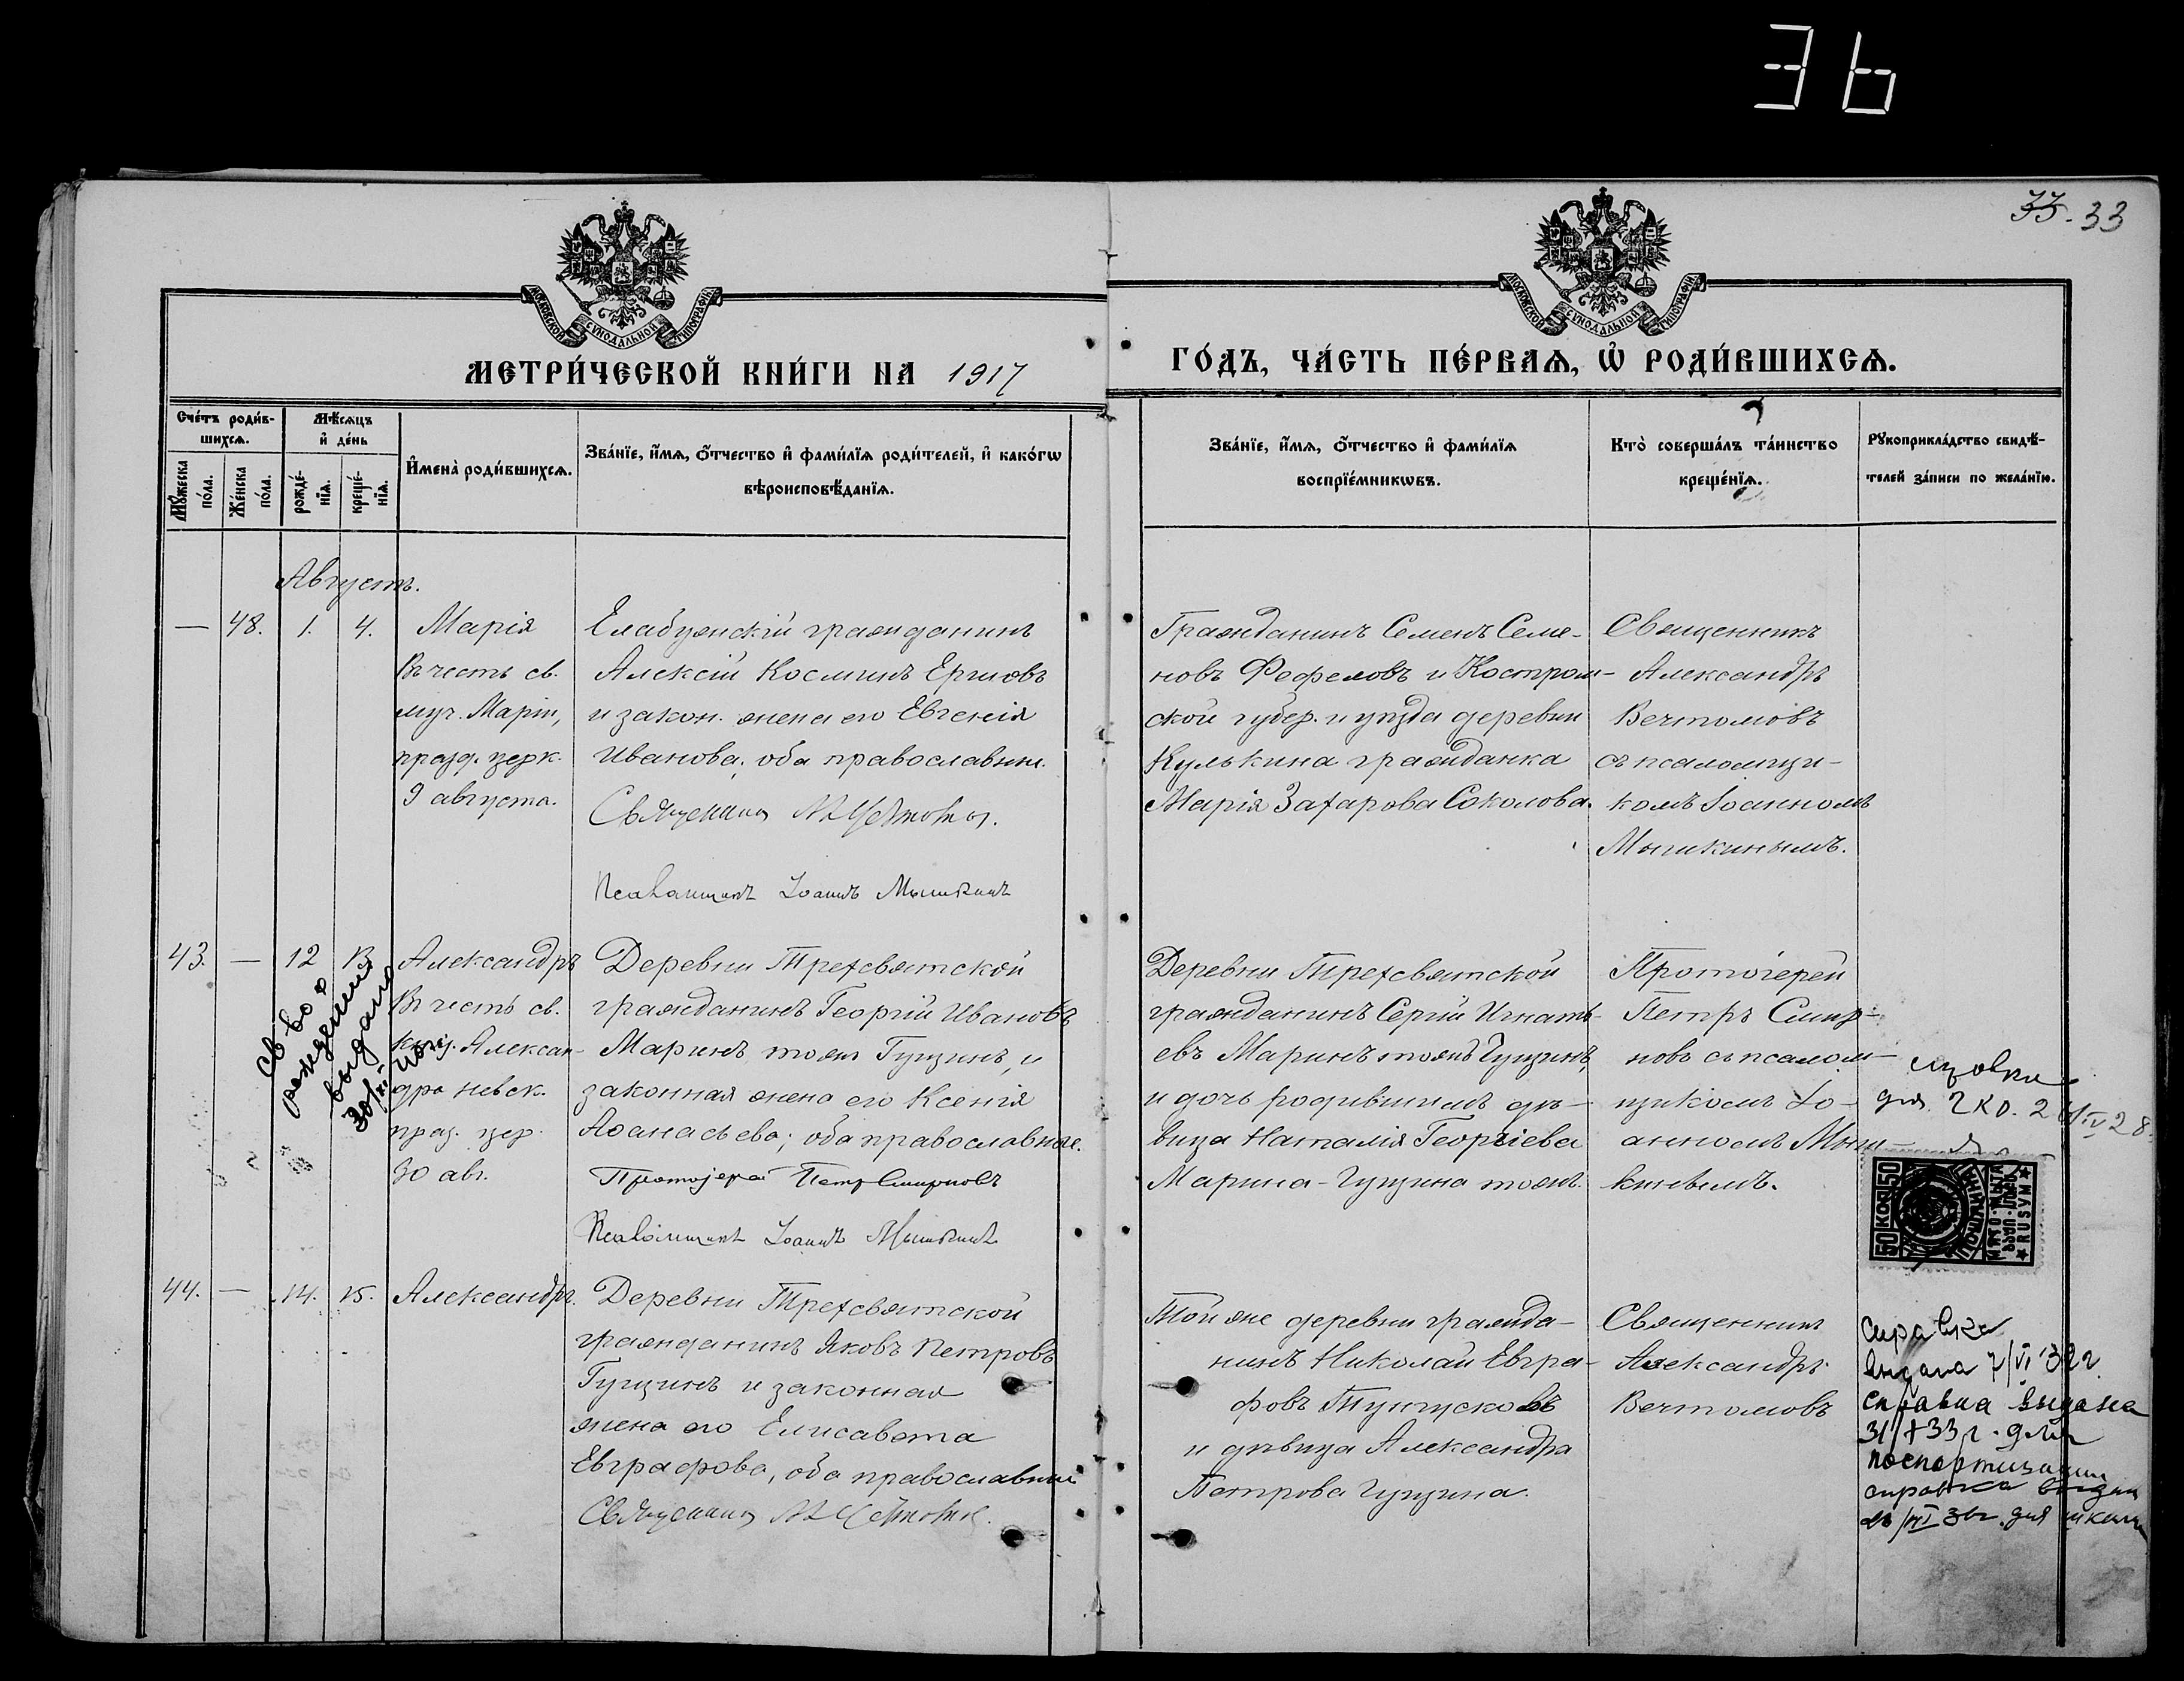 36
33. 33
МОСКОВСКОЙ СѴНОДАЛЬНОЙ ТИПОГРАФІИ.
МОСКОВСКОЙ СѴНОДАЛЬНОЙ ТИПОГРАФІИ.
МЕТРИ́ЧЕСКОЙ КНИ́ГИ НА 1917
ГО́ДЪ, ЧА́СТЬ ПЕ́РВАѦ, Ѡ҆ РОДИ́ВШИХСѦ.
Сче́тъ роди́в-
шихсѧ.
Мѣ́сѧцъ
и҆ де́нь
Мꙋ́жеска
по́ла.
Же́нска
по́ла.
рожде́-
нїѧ.
креще́-
нїѧ.
И҆мена̀ роди́вшихсѧ.
Зва́нїе, и҆́мѧ, ѻ҆́тчество и҆ фами́лїѧ роди́телей, и҆ како́гѡ
вѣроисповѣ́данїѧ.
Зва́нїе, и҆́мѧ, ѻ҆́тчество и҆ фами́лїѧ
воспрїе́мникѡвъ.
Кто̀ соверша́лъ та́инство
креще́нїѧ.
Рꙋкоприкла́дство свидѣ́-
телей за́писи по жела́нїю.
Августъ.
— 48. 1. 4.
Марія
Въ честь св.
муч. Маріи,
празд. церк.
9 августа.
Елабужскій гражданинъ
Алексій Косминъ Ершовъ
и закон. жена его Евгенія
Иванова, оба православные.
Священникъ
Псаломщикъ Іоаннъ Мышкинъ
Гражданинъ Семенъ Семе-
новъ Фефеловъ и Костром-
ской губер. и уѣзда деревни
Кулькина гражданка
Марія Захарова Соколова.
Священникъ
Александръ
Вечтомовъ
съ псаломщи-
комъ Іоанномъ
Мышкинымъ.
43. — 12 13
Александръ
Въ честь св.
княз. Алексан-
дра невск.
праз. цер.
30 авг.
Св во о
рождении
выдано
30/XI
Деревни Трехсвятской
гражданинъ Георгій Ивановъ
Маринъ тожъ Гущинъ, и
законная жена его Ксенія
Аѳанасьева; оба православные.
Протоіерей Петръ Смирновъ
Псаломщикъ Іоаннъ Мышкинъ
Деревни Трехсвятской
гражданинъ Сергій Игнать-
евъ Маринъ тожъ Гущинъ,
и дочь родившимъ дѣ-
вица Наталія Георгіева
Марина - Гущина тожъ.
Протоіерей
Петръ Смир-
новъ съ псалом-
щикомъ Іо-
анномъ Мыш-
кинымъ.
для 2 IV 28.
50 КОП 50
44. — 14. 15.
Александръ.
Деревни Трехсвятской
гражданинъ Яковъ Петровъ
Гущинъ и законная
жена его Елисавета
Евграфова, оба православные
Священникъ
Той же деревни гражда-
нинъ Николай Евгра-
фовъ Тунгусковъ
и дѣвица Александра
Петрова Гущина.
Священникъ
Александръ
Вечтомовъ
Справка
выдана 7/VI 32 г.
справка выдана
31/X 33 г. для
паспортизации
справка выдан
для школы